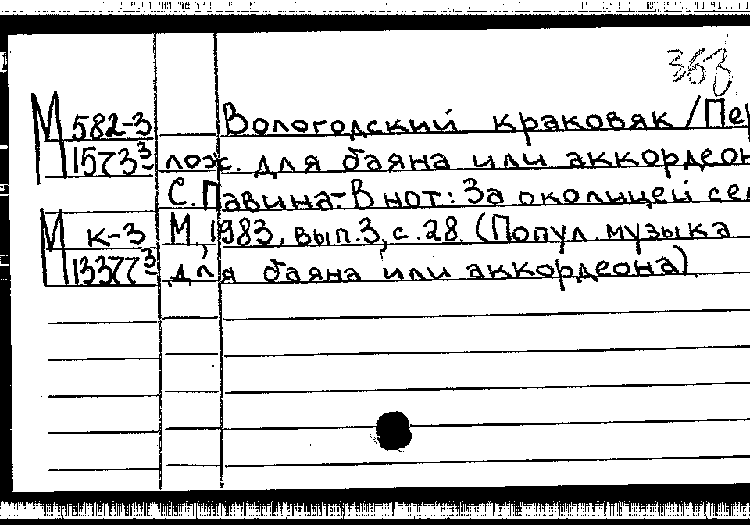 363
М 582-3 Вологодский краковяк / Пер
1573³ лож. для баяна или аккордеон
С. Павина.- В нот.: За околицей сел
М К-3 М., 1983, вып.3, с.28. (Попул. музыка
13377³ для баяна или аккордеона)